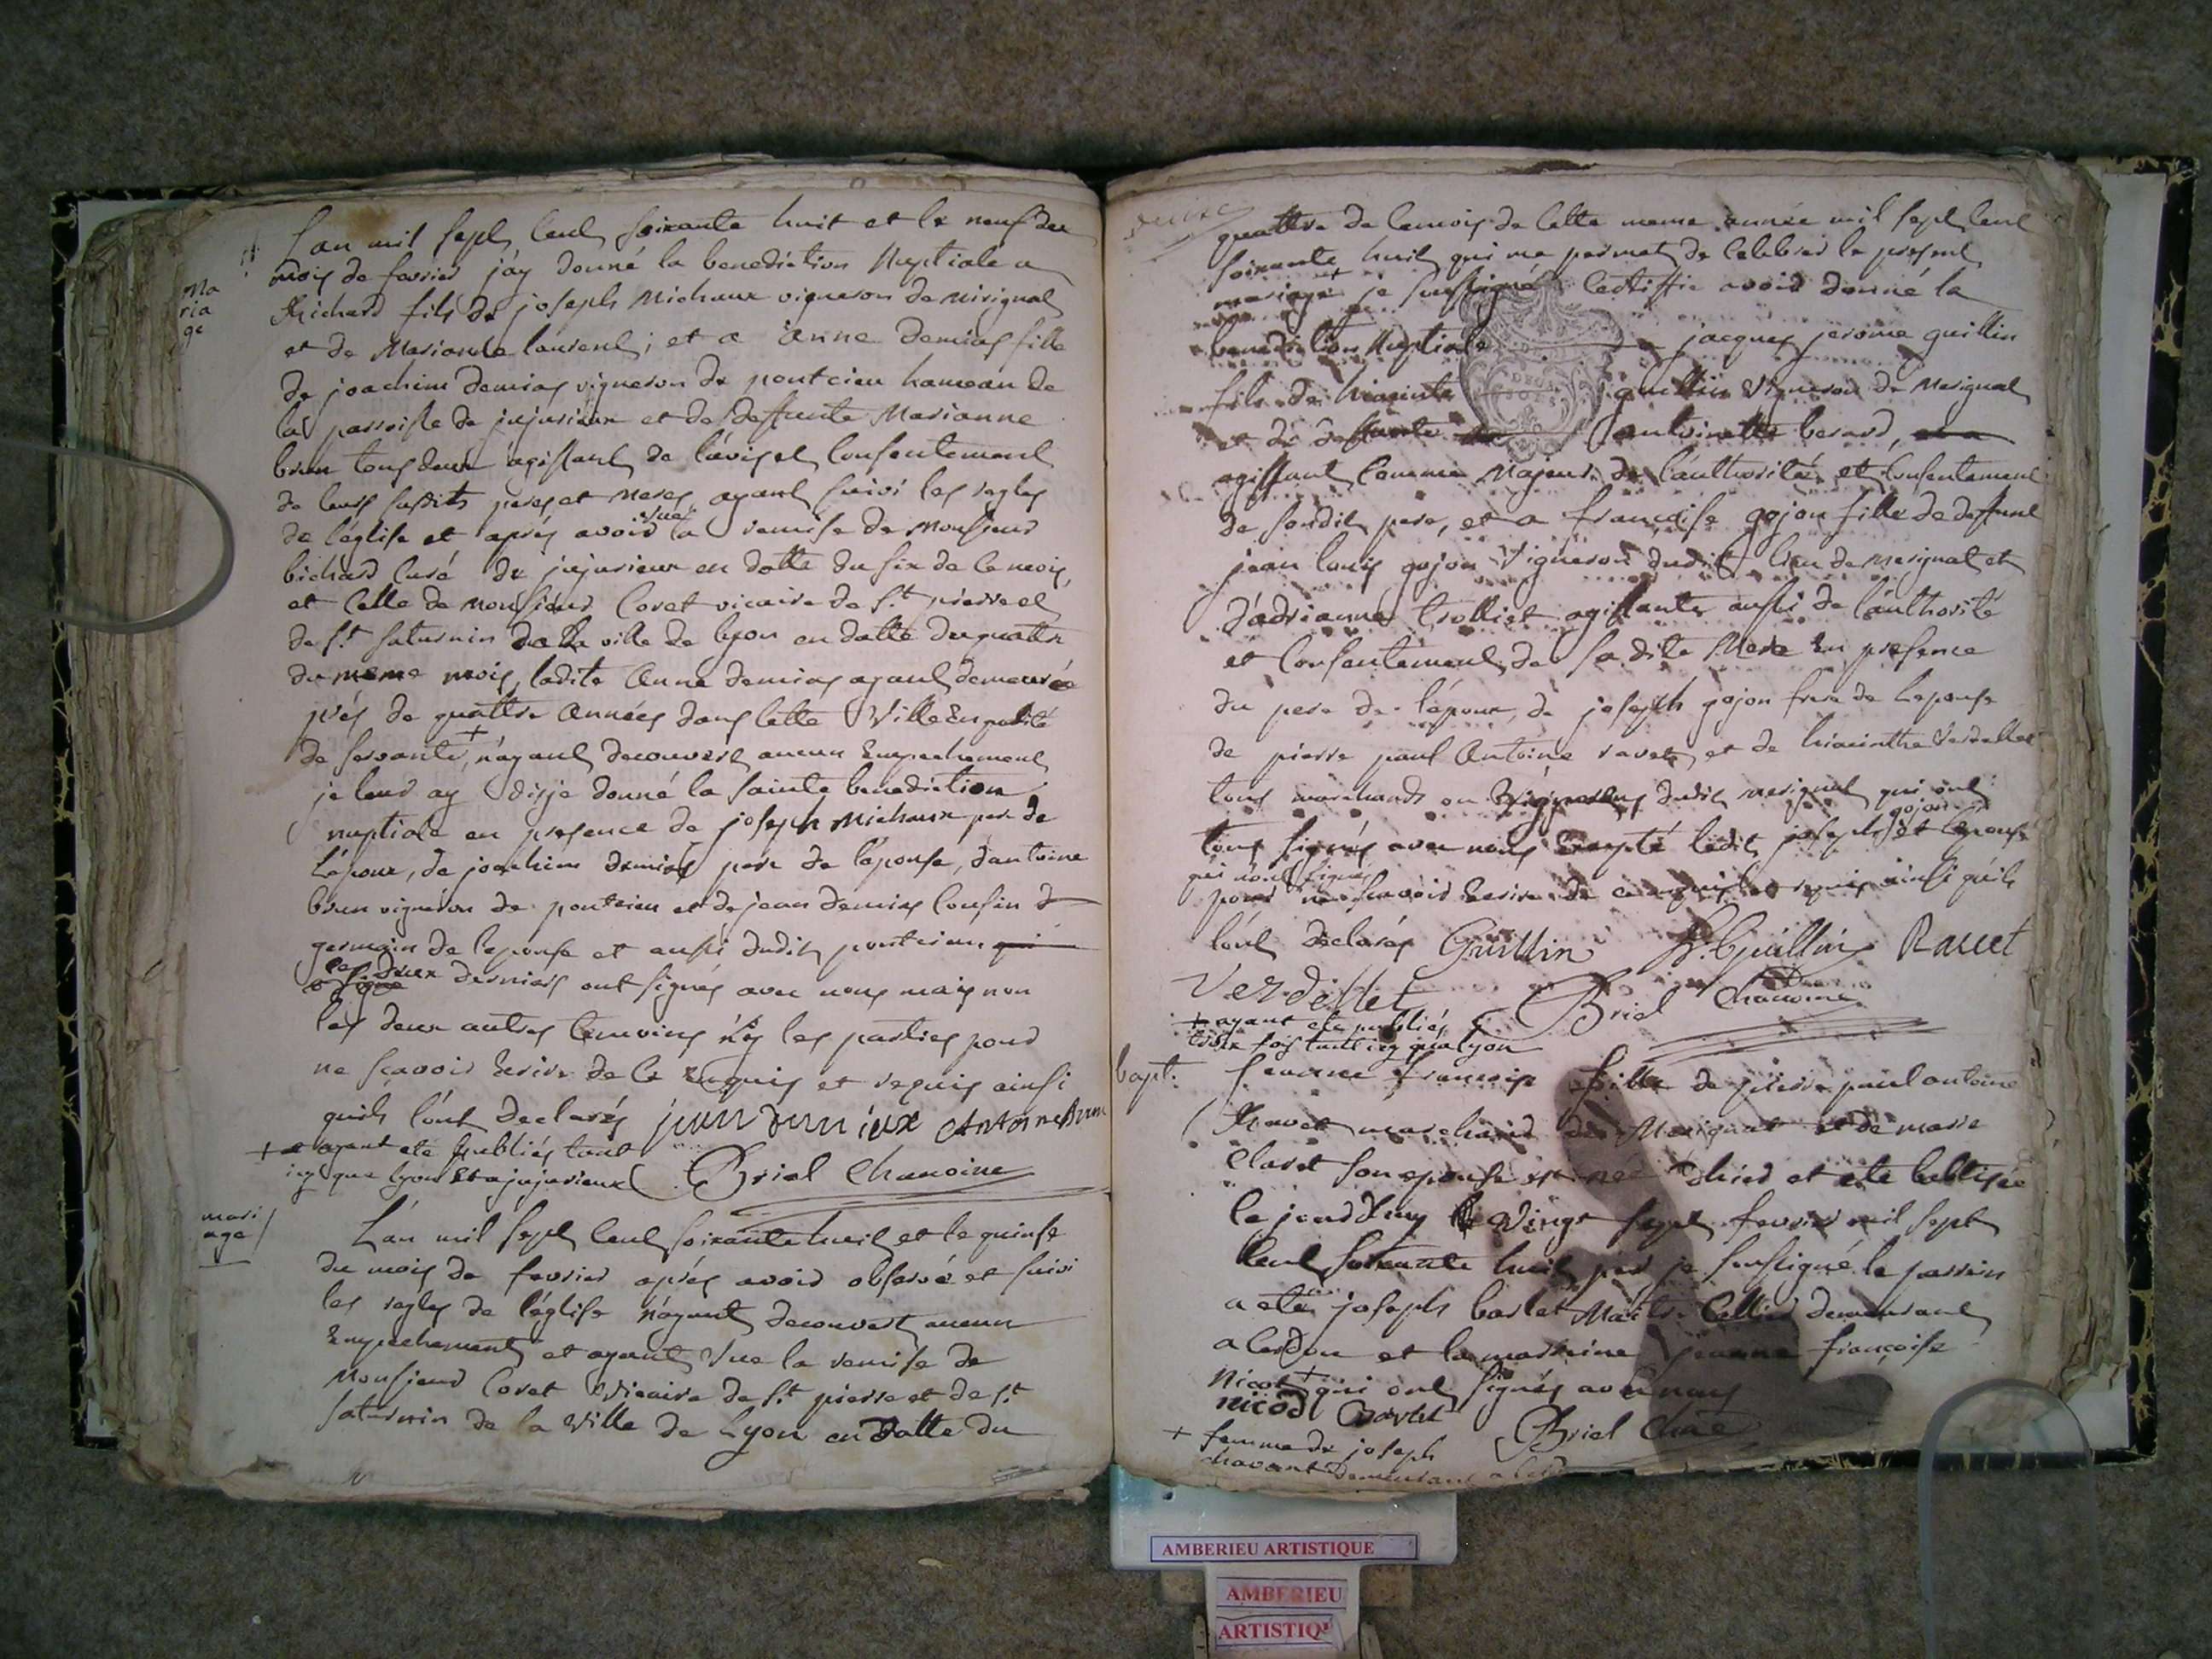 Ma
ria
ge
L'an mil sept cent soixante huit et le neuf du
mois de fevrier j'ay donné la benediction Nuptiale a
Richard fils de joseph Michaux vigneron de Mirignat
et de Marianne laurent; et a anne demias fille
de joachim demias vigneron de pontcieu hameau de
la parroisse de jujurieux et de deffunte Marianne
brun tous deux agissant de l'avis et Consentement
de leurs susdits peres et meres ayant suivi les regles
de l'église et aprés avoir vue la remise de Monsieur
bichard Curé de jujurieux en datte du six de ce mois,
et Celle de Monsieur Coret vicaire de St. pierre et
de St. Saturnin de la ville de lyon en datte du quattre
du meme mois, ladite Anne demias ayant demeurée
prés de quattre Années dans Cette Ville En qualité
de servante, + n'ayant decouvert aucun Empechement
je leur ay disje donné la sainte benediction
nuptiale en presence de joseph Michaux pere de
l'epoux, de joachim demias pere de l'épouse, d'antoine
brun vigneron de pontcieu et de jean demias Cousin
germain de l'epouse et aussi dudit pontcieu
les deux derniers ont signés avec nous mais non
les deux autres temoins n'y les parties pour
ne scavoir Ecrire de Ce Enquis et requis ainsi
quils l'ont declarés jean dumieux Antoine Brun
+ ayant eté publiés tant
icy que lyon Et a jujurieux Briel Chanoine
mari
age
L'an mil sept Cent soixante huit et le quinse
du mois de fevrier aprés avoir observé et suivi
les regles de l'église n'ayant decouvert aucun
Empechement et ayant Vue la remise de
Monsieur Coret Vicaire de St. pierre et de St.
Saturnin de la Ville de Lyon en datte du
quattre de ce mois de Cette meme année mil sept Cent
soixante huit qui me permet de Celebrer le present
mariage + je soussigné Certiffie avoir donné la
benediction Nuptiale a jacques jerome guillin
fils de hiacinte guillin Vigneron de Merignat
et de deffunte antoinette berard,
agissant Comme Majeur de l'authorité et Consentement
de sondit pere, et a francoise gojon fille de deffunt
jean louis gojon Vigneron dudit lieu de Merignat et
d'adrianne trolliet agissante aussi de l'authorité
et Consentement de sa dite Mere En presence
du pere de l'époux, de joseph gojon frere de l'epouse
de pierre paul Antoine ravet, et de hiacinthe Verdellet
tous marchands ou Vignerons dudit merignat qui ont
tous signés avec nous Excepté ledit joseph gojon et l'épouse
qui n'ont signés
pour ne scavoir Ecrire de ce enquis et requis ainsi qu'ils
l'ont declarés Guillin h. Guillin Ravet
Verdellet Briel Chanoine
+ ayant eté publiés
trois fois tant icy qua lyon
bapt:
jeanne francoise fille de pierre paul antoine
Ravet marchand de Merignat et de marie
Claret son epouse est née d'hier et eté battisée
le jourdhuy Vingt sept fevrier mil sept
Cent soixante huit par je soussigné le parrin
a eté joseph barlet Maitre Cellier demeurant
a Cerdon et la marrine jeanne francoise
Nicod + qui ont signés avec nous
nicod Barlet Briel Chne
+ femme de joseph
chavant demeurant a
AMBERIEU ARTISTIQUE
AMBERIEU
ARTISTIQU